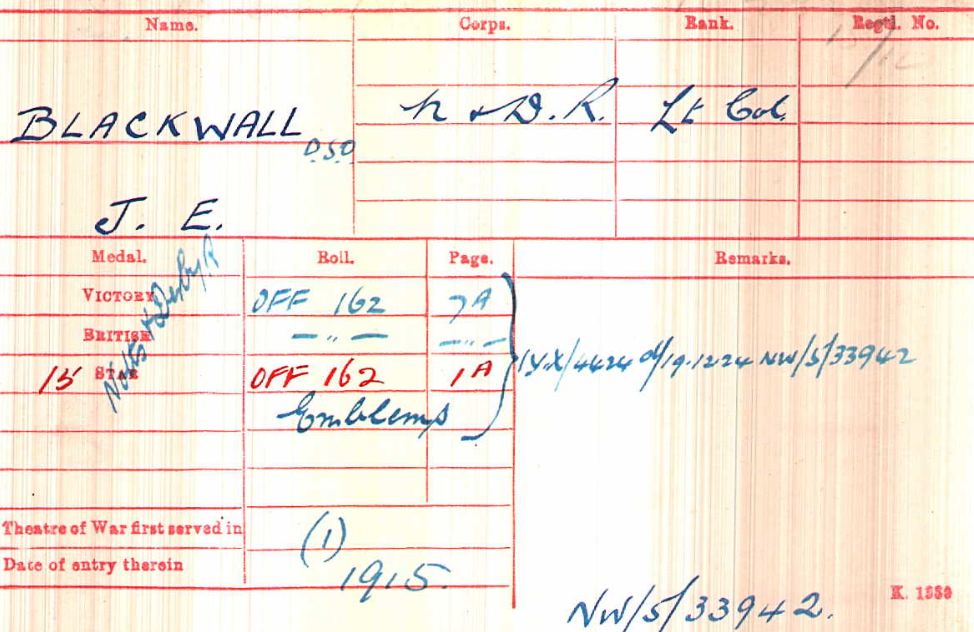 Name. Corps. Rank. Regtl. No.
BLACKWALL N & D.R. Lt Col.
D.S.O
J. E.
Medal. Roll. Page. Remarks.
Notts & Derby R
VICTORY OFF 162 7A
BRITISH — „ — — „ —
15 STAR OFF 162 1A
Emblems
/4424 d/19.12.24 NW/5/33942
Theatre of War first served in (1)
Date of entry therein 1915.
NW/5/33942.
K. 1380